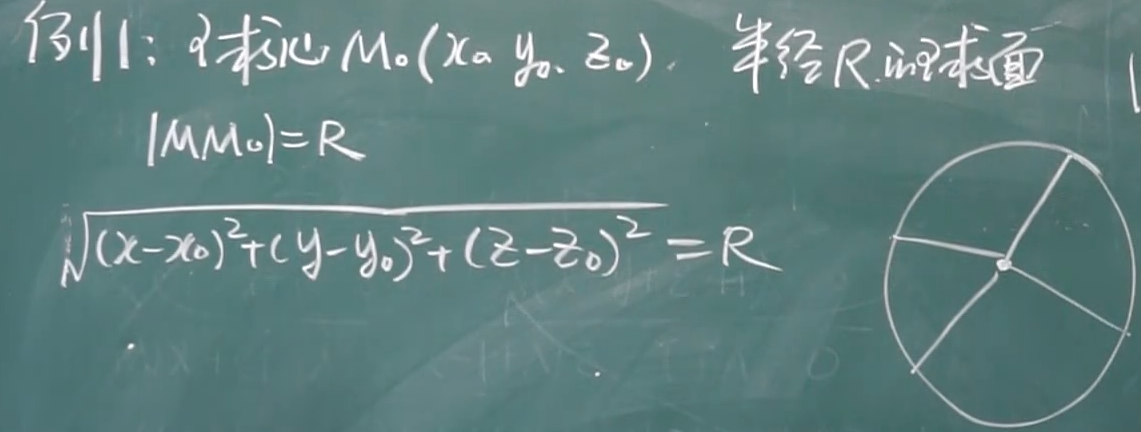 例1: 球心 M₀(x₀ y₀、z₀). 半径R的球面
|MM₀|=R
√(x-x₀)²+(y-y₀)²+(z-z₀)² = R